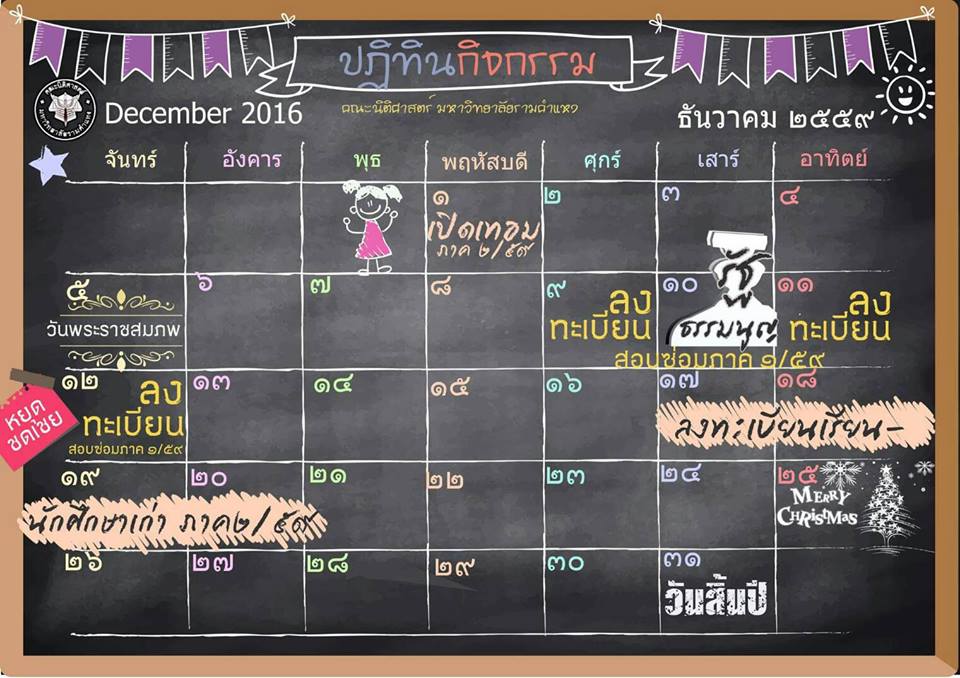 ปฏิทินกิจกรรม
December 2016
คณะนิติศาสตร์ มหาวิทยาลัยรามคำแหง
ธันวาคม ๒๕๕๙
จันทร์ อังคาร พุธ พฤหัสบดี ศุกร์ เสาร์ อาทิตย์
๑ ๒ ๓ ๔
เปิดเทอม
ภาค ๒/๕๙
๕ ๖ ๗ ๘ ๙ ๑๐ ๑๑
วันพระราชสมภพ
ลง
ทะเบียน
รัฐ
ธรรมนูญ
ลง
ทะเบียน
สอบซ่อมภาค ๑/๕๙
๑๒ ๑๓ ๑๔ ๑๕ ๑๖ ๑๗ ๑๘
หยุด
ชดเชย
ลง
ทะเบียน
สอบซ่อมภาค ๑/๕๙
ลงทะเบียนเรียน-
๑๙ ๒๐ ๒๑ ๒๒ ๒๓ ๒๔ ๒๕
นักศึกษาเก่า ภาค๒/๕๙
MERRY
CHRISTMAS
๒๖ ๒๗ ๒๘ ๒๙ ๓๐ ๓๑
วันสิ้นปี